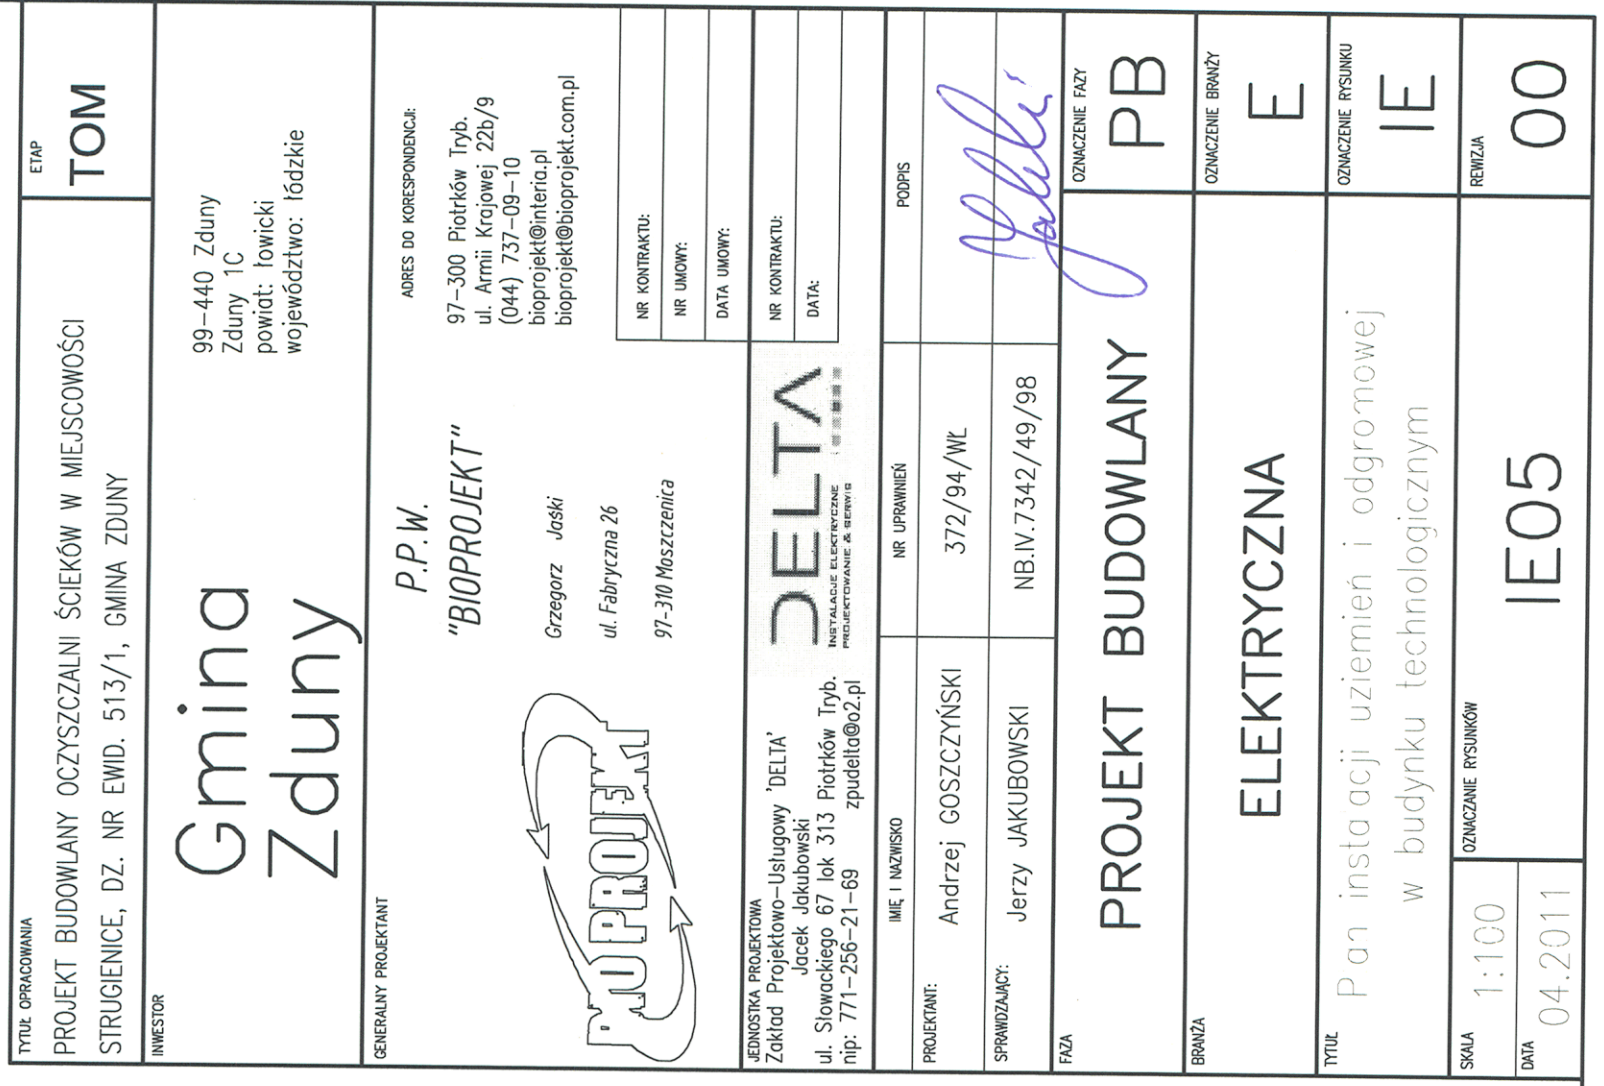 TYTUŁ OPRACOWANIA
PROJEKT BUDOWLANY OCZYSZCZALNI ŚCIEKÓW W MIEJSCOWOŚCI
STRUGIENICE, DZ. NR EWID. 513/1, GMINA ZDUNY
ETAP
TOM
INWESTOR
Gmina
Zduny
99-440 Zduny
Zduny 1C
powiat: łowicki
województwo: łódzkie
GENERALNY PROJEKTANT
BIOPROJEKT
P.P.W.
"BIOPROJEKT"
Grzegorz Jaśki
ul. Fabryczna 26
97-310 Moszczenica
ADRES DO KORESPONDENCJI:
97-300 Piotrków Tryb.
ul. Armii Krajowej 22b/9
(044) 737-09-10
bioprojekt@interia.pl
bioprojekt@bioprojekt.com.pl
NR KONTRAKTU:
NR UMOWY:
DATA UMOWY:
JEDNOSTKA PROJEKTOWA
Zakład Projektowo-Usługowy 'DELTA'
Jacek Jakubowski
ul. Słowackiego 67 lok 313 Piotrków Tryb.
nip: 771-256-21-69 zpudelta@o2.pl
DELTA
INSTALACJE ELEKTRYCZNE
PROJEKTOWANIE & SERWIS
NR KONTRAKTU:
DATA:
IMIĘ I NAZWISKO NR UPRAWNIEŃ PODPIS
PROJEKTANT: Andrzej GOSZCZYŃSKI 372/94/WŁ
SPRAWDZAJĄCY: Jerzy JAKUBOWSKI NB.IV.7342/49/98
FAZA
PROJEKT BUDOWLANY
OZNACZENIE FAZY
PB
BRANŻA
ELEKTRYCZNA
OZNACZENIE BRANŻY
E
TYTUŁ
P an insta acji uziemień i odgromowej
w budynku technologicznym
OZNACZENIE RYSUNKU
IE
SKALA
1:100
DATA
04.2011
OZNACZANIE RYSUNKÓW
IE05
REWIZJA
00